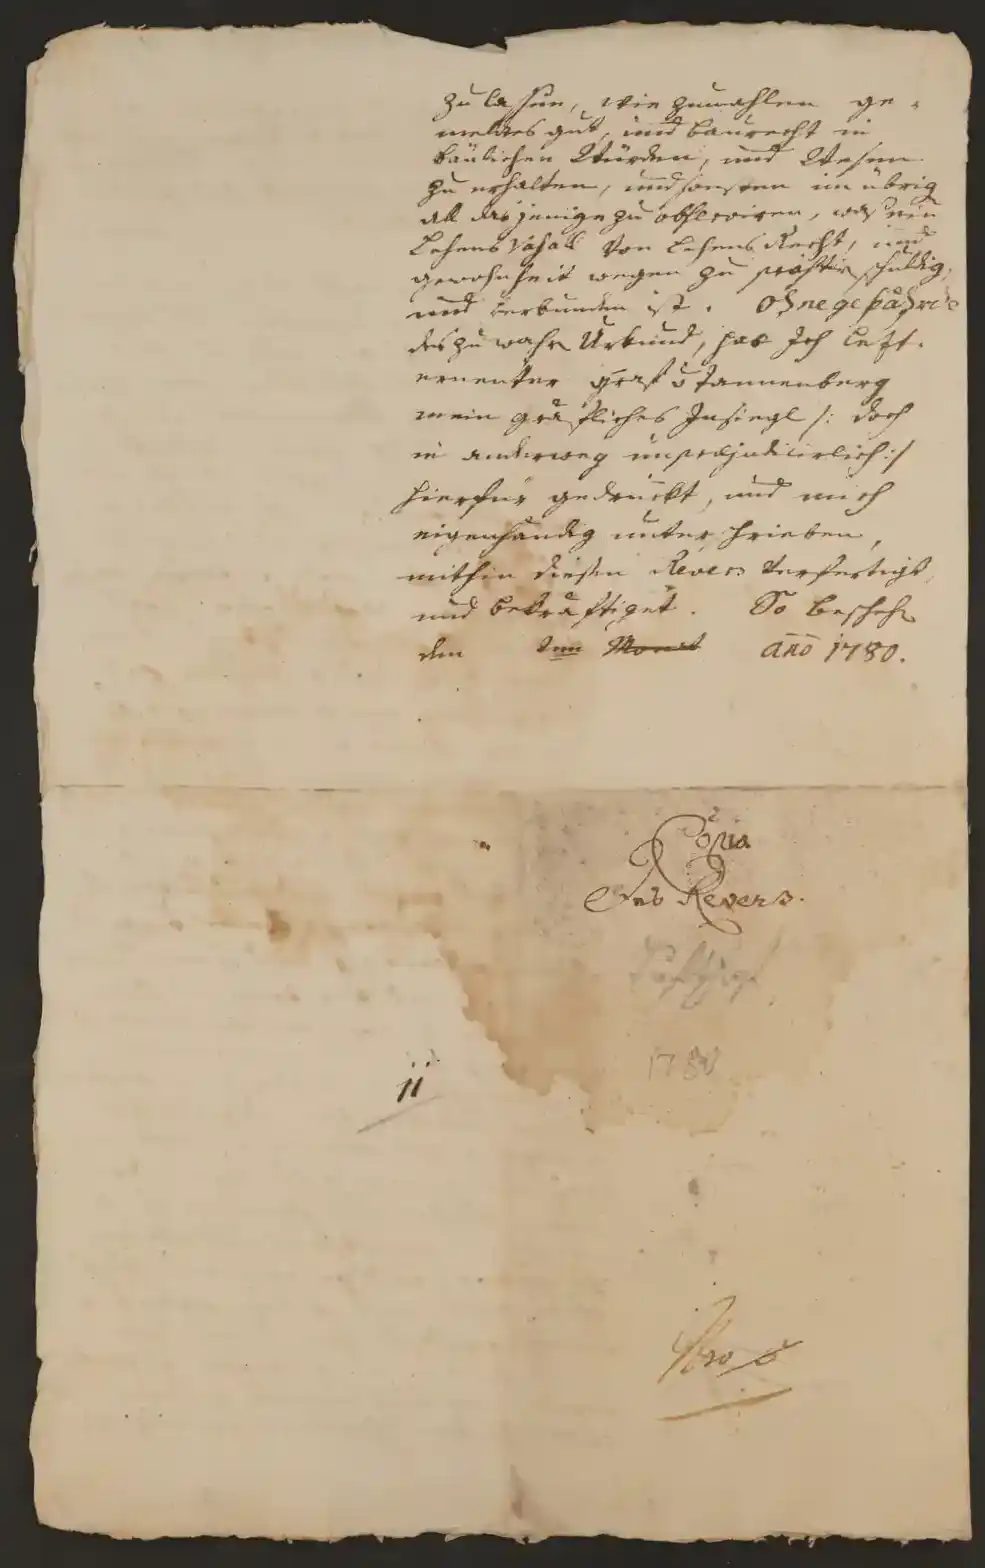 zu lassen, wie zumahlen ge-
meltes gut, und baurecht in
bäulichen Würden, und Wesen
zu erhalten, und sonsten im übrig
all dasjenige zu observiren, was ein
Lehens Vasall von Lehens Recht, und
gewohnheit wegen zu praestirn schuldig,
und verbunden ist. Ohne gefährde
des zu wahr Urkund, hab Ich lezt.
ernenter Graf v Tannenberg
mein gräfliches Insiegl /: doch
in anderweg unpraejudicirlich :/
hierfür gedruckt, und mich
eigenhändig unterschrieben,
mithin diesen Revers verfertigt,
und bekräftiget. So beschehen
den ten Monat año 1780.
Copia
des Revers.
1780
11
Nro 6